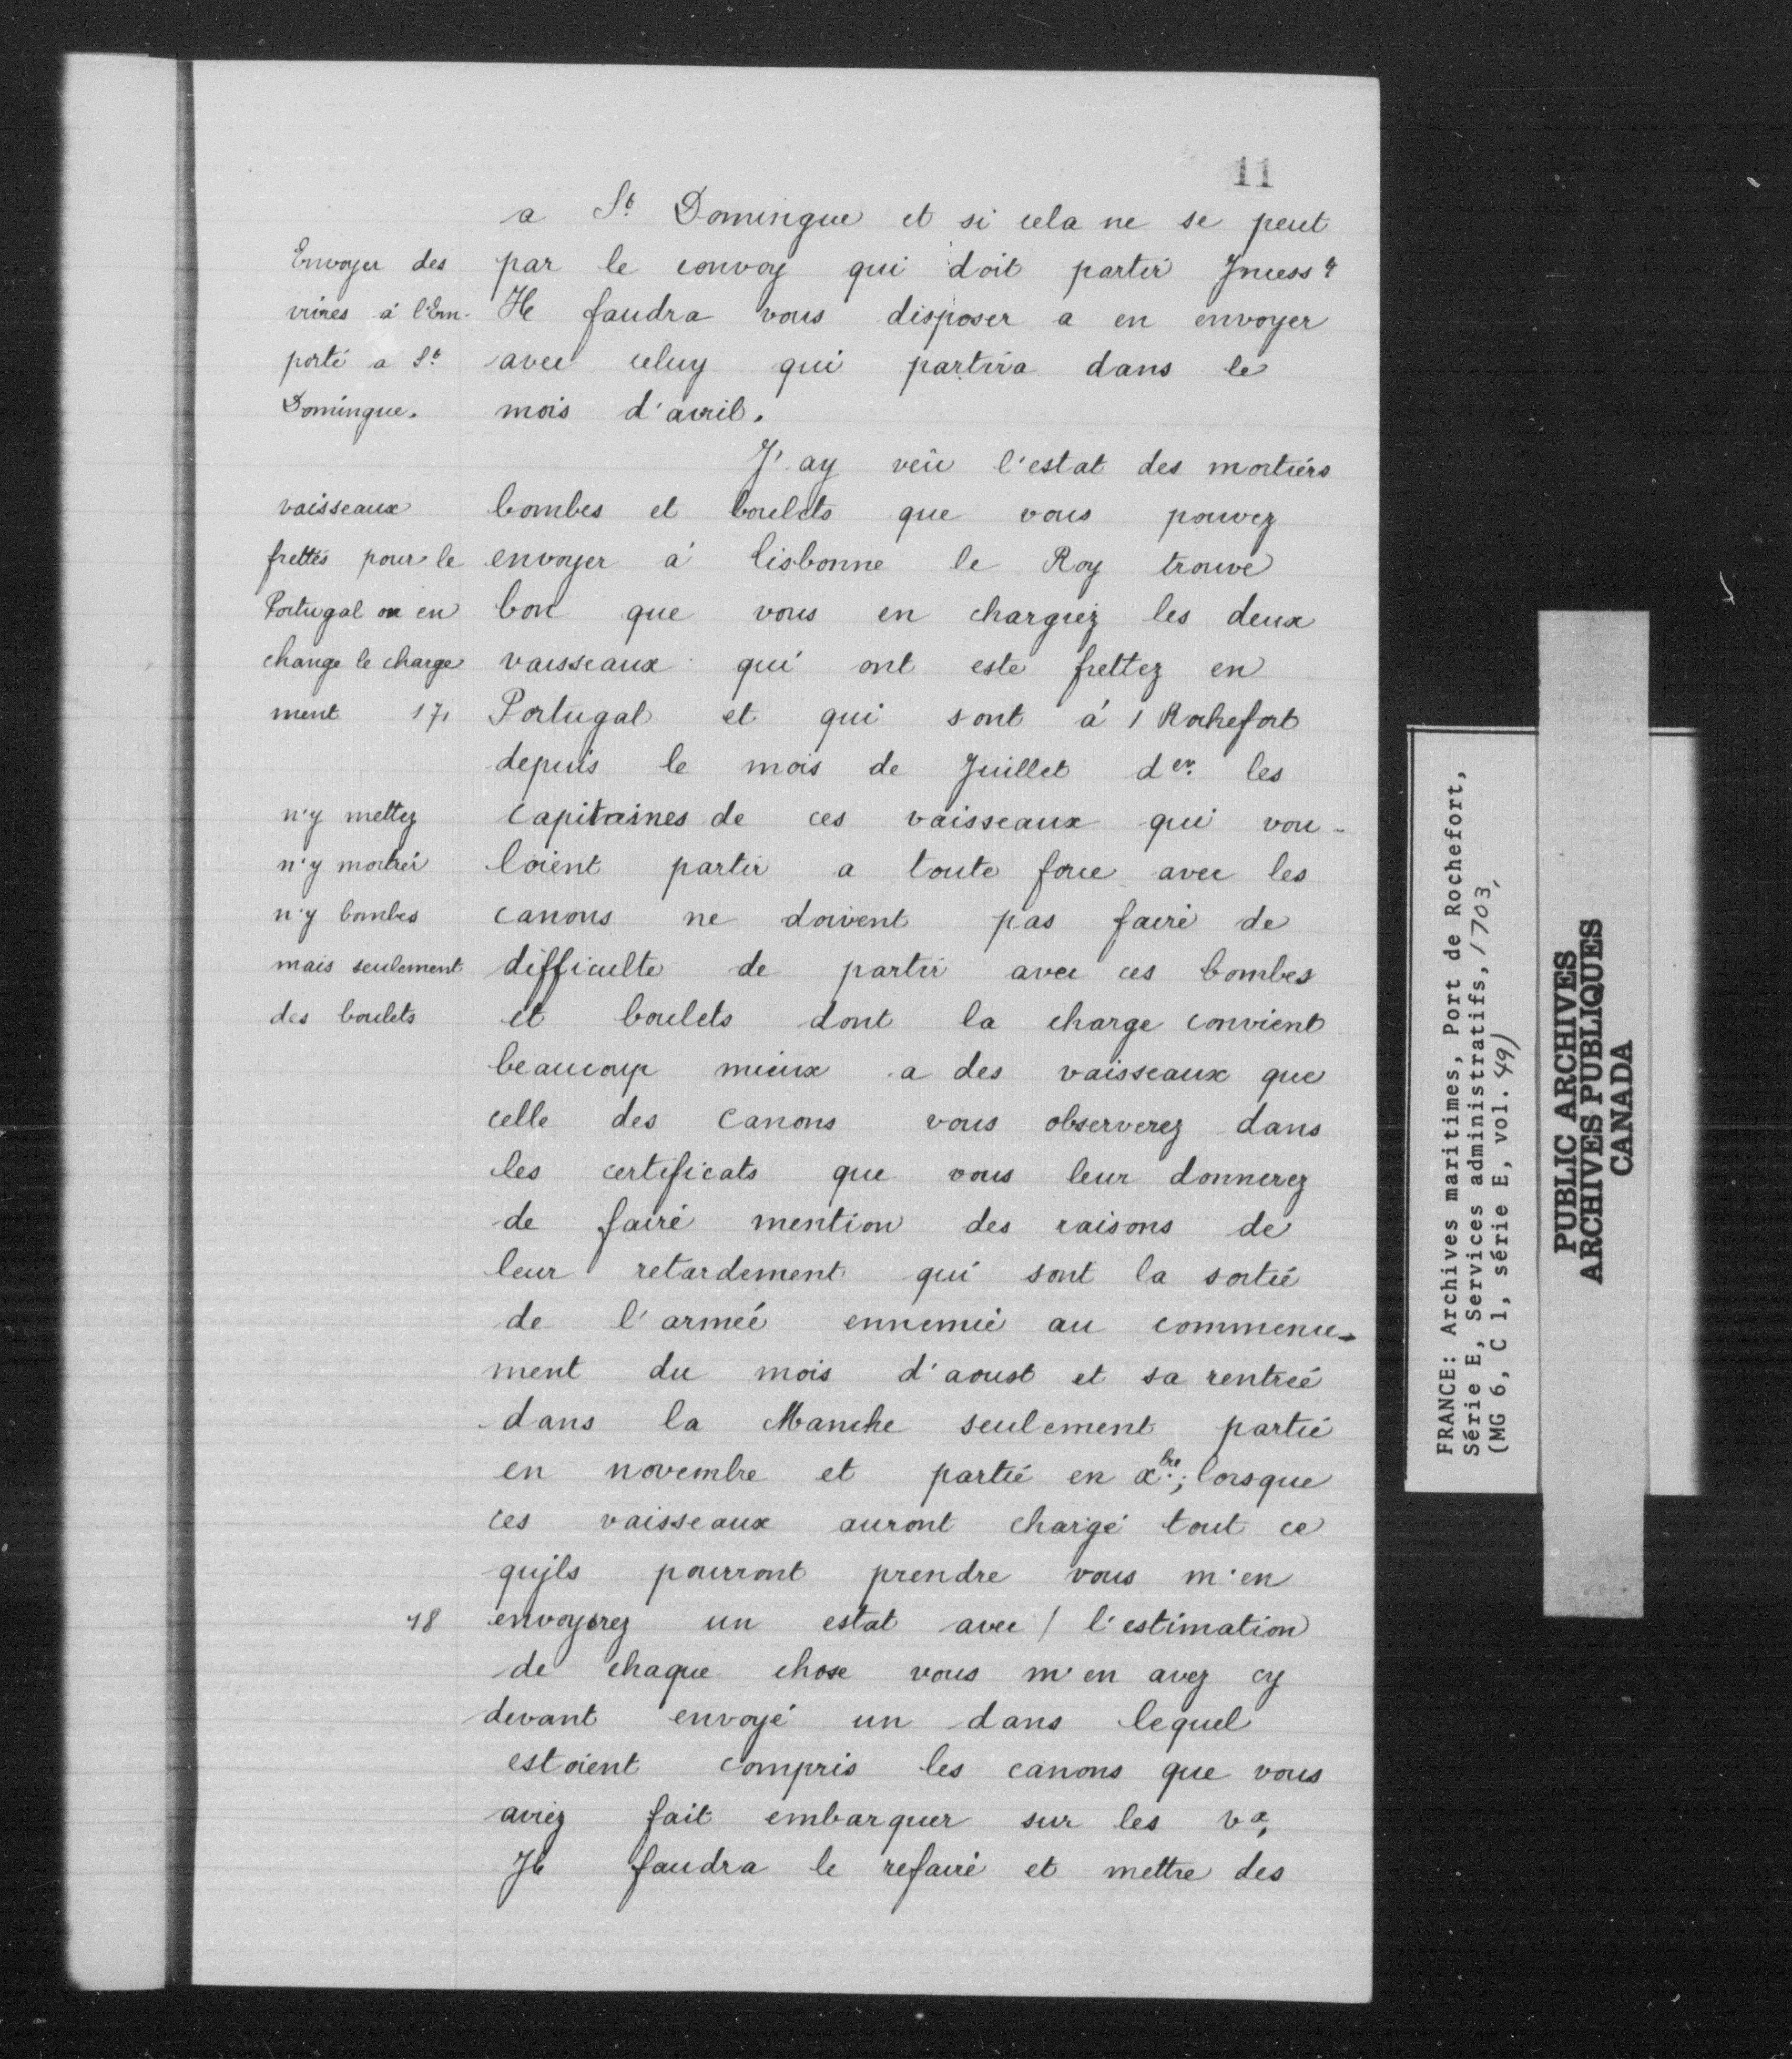 11
a St. Domingue et si cela ne se peut
Envoyer des
vivres à l'Em-
porté a St.
Domingue.
par le convoy qui doit partir Jncesst
Jl faudra vous disposer a en envoyer
avec celuy qui partira dans le
mois d'avril.
J'ay veü l'estat des mortiers
vaisseaux
frettés pour le
Portugal on en
change le charge
ment 17,
bombes et boulets que vous pouvez
envoyer à Lisbonne le Roy trouve
bon que vous en chargiez les deux
vaisseaux qui ont este frettez en
Portugal et qui sont à / Rochefort
depuis le mois de Juillet der. les
n'y mettez
n'y mortier
n'y bombes
mais seulement
des boulets
Capitaines de ces vaisseaux qui vou-
loient partir a toute force avec les
canons ne doivent pas faire de
difficulte de partir avec ces bombes
et boulets dont la charge convient
beaucoup mieux a des vaisseaux que
celle des canons vous observerez dans
les certificats que vous leur donnerez
de faire mention des raisons de
leur retardement qui sont la sortie
de l'armée ennemie au commence-
ment du mois d'aoust et sa rentrée
dans la Manche seulement partie
en novembre et partie en xbre; lorsque
ces vaisseaux auront chargé tout ce
qujls pourront prendre vous m'en
18
envoyerez un estat avec / l'estimation
de chaque chose vous m'en avez cy
devant envoyé un dans lequel
estoient compris les canons que vous
aviez fait embarquer sur les vx,
Jl faudra le refaire et mettre des
FRANCE: Archives maritimes, Port de Rochefort,
Série E, Services administratifs, 1703,
(MG 6, C 1, série E, vol. 49)
PUBLIC ARCHIVES
ARCHIVES PUBLIQUES
CANADA